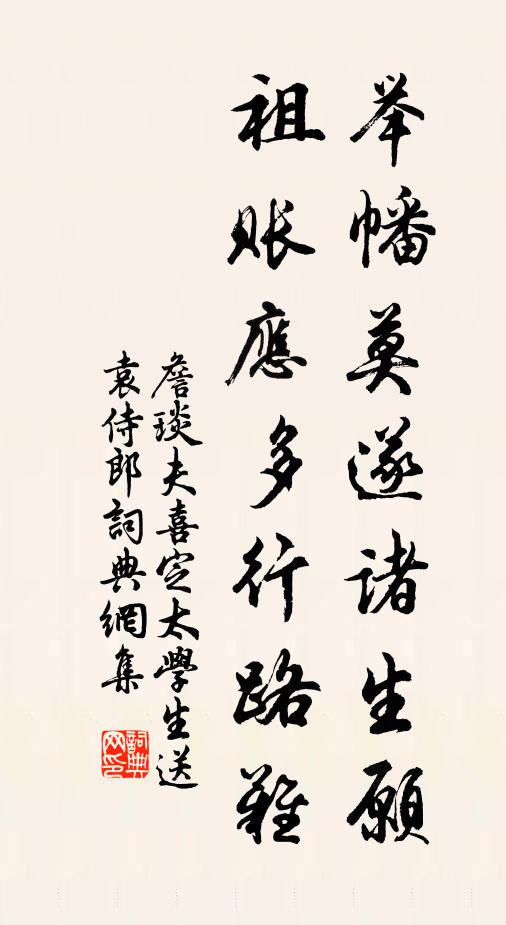 举幡莫遂诸生愿
祖账應多行路難
詹琰夫喜定太學生送
袁侍郎詞典網集
詞典网印